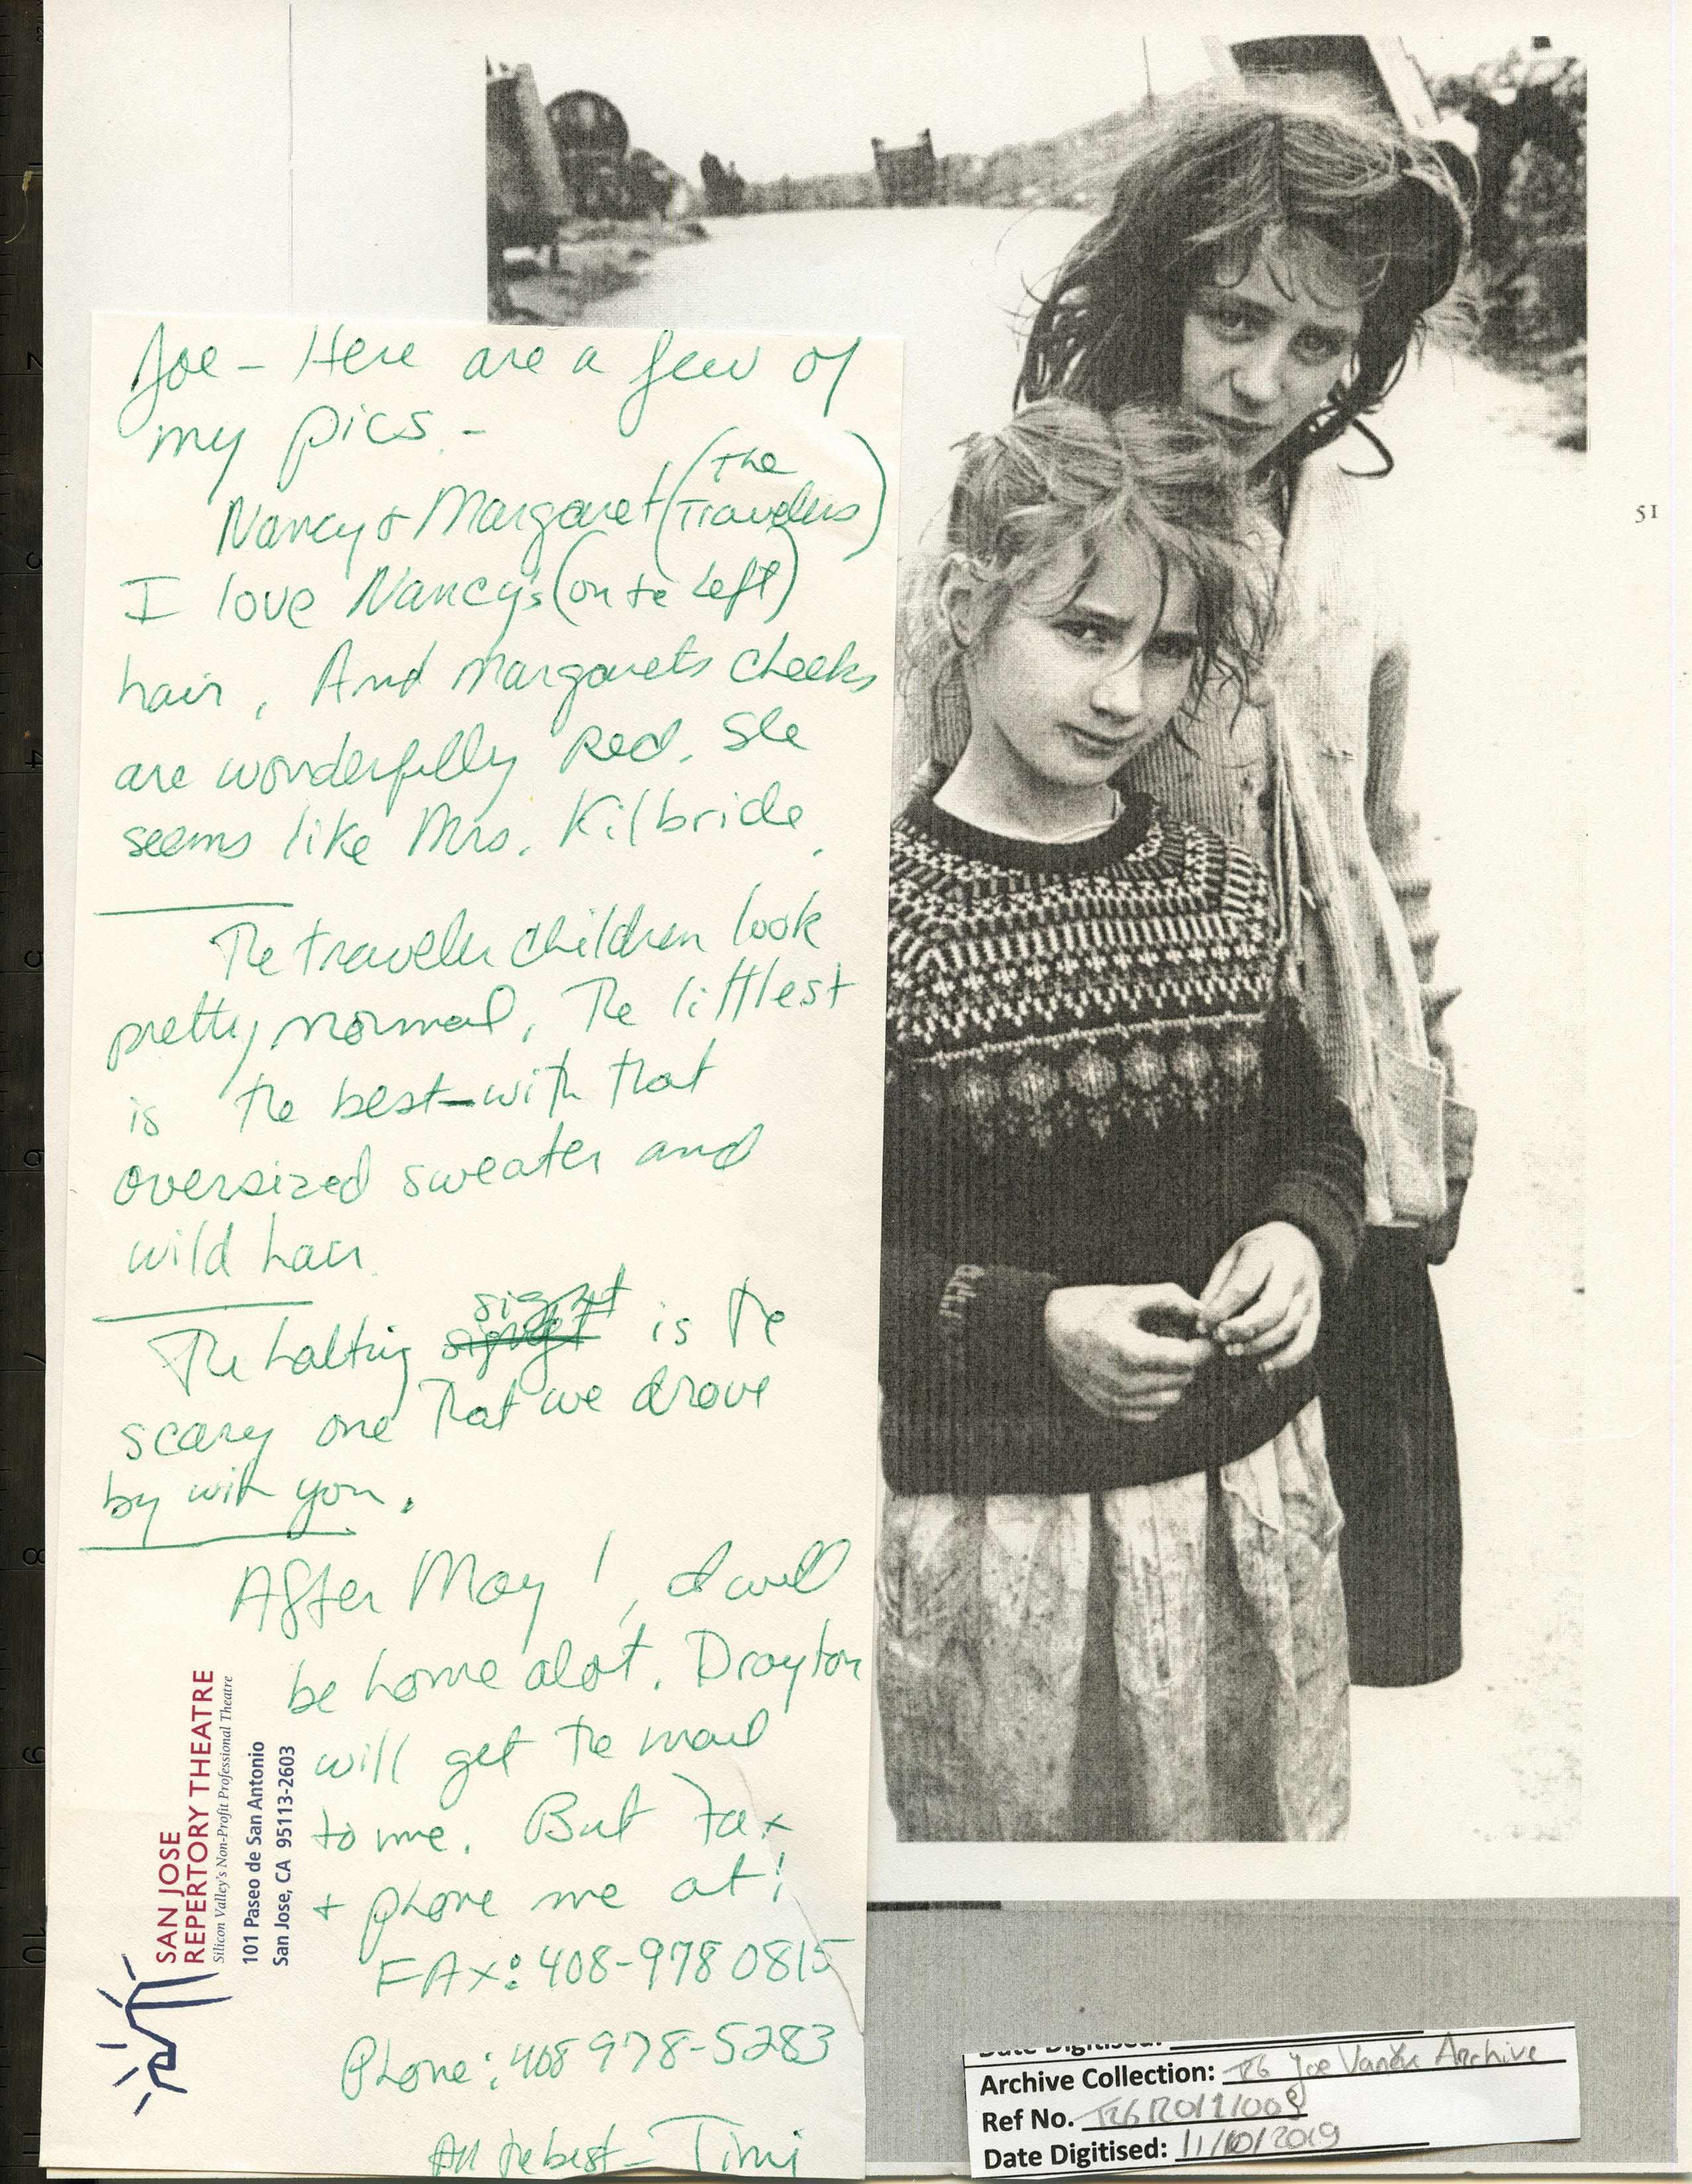 Joe – Here are a few of
my pics. –
Nancy & Margaret (the Travelers)
I love Nancy's (on te left)
hair, And Margarets cheeks
are wonderfully Red. She
seems like Mrs. Kilbride.
The traveler children look
pretty normal, The littlest
is the best – with that
oversized sweater and
wild hair.
The halting is the
scary one that we drove
by with you.
After May 1, I will
be home alot. Drayton
will get the mail
to me. But Fax
+ phone me at:
FAX: 408-978 0815
Phone: 408 978-5283
All the best – Timi
SAN JOSE
REPERTORY THEATRE
Silicon Valley's Non-Profit Professional Theatre
101 Paseo de San Antonio
San Jose, CA 95113-2603
51
Date Digitised:
Archive Collection: T26 Joe Vanek Archive
Ref No.
Date Digitised: 11/10/2019